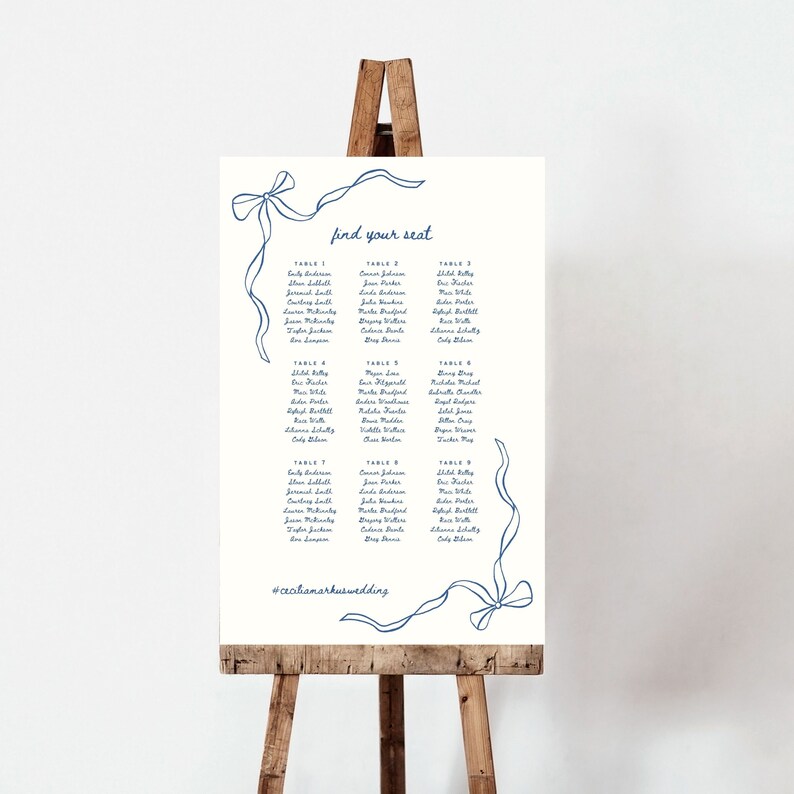 find your seat
TABLE 1
Emily Anderson
Sloan Sabbath
Jeremiah Smith
Courtney Smith
Lauren McKinnley
Jason McKinnley
Taylor Jackson
Ava Sampson
TABLE 2
Connor Johnson
Joan Parker
Linda Anderson
Julia Hawkins
Marlee Bradford
Gregory Walters
Cadence Davila
Grey Dennis
TABLE 3
Shiloh Kelley
Eric Fischer
Maci White
Aiden Porter
Ryleigh Bartlett
Kace Walls
Lilianna Schultz
Cody Gibson
TABLE 4
Shiloh Kelley
Eric Fischer
Maci White
Aiden Porter
Ryleigh Bartlett
Kace Walls
Lilianna Schultz
Cody Gibson
TABLE 5
Megan Sosa
Emir Fitzgerald
Marlee Bradford
Anders Woodhouse
Natalia Fuentes
Bowie Madden
Violette Wallace
Chase Horton
TABLE 6
Ginny Gray
Nicholas Michael
Aubrielle Chandler
Royal Rodgers
Selah Jones
Dillon Craig
Brynn Weaver
Tucker May
TABLE 7
Emily Anderson
Sloan Sabbath
Jeremiah Smith
Courtney Smith
Lauren McKinnley
Jason McKinnley
Taylor Jackson
Ava Sampson
TABLE 8
Connor Johnson
Joan Parker
Linda Anderson
Julia Hawkins
Marlee Bradford
Gregory Walters
Cadence Davila
Grey Dennis
TABLE 9
Shiloh Kelley
Eric Fischer
Maci White
Aiden Porter
Ryleigh Bartlett
Kace Walls
Lilianna Schultz
Cody Gibson
#ceciliamarkuswedding